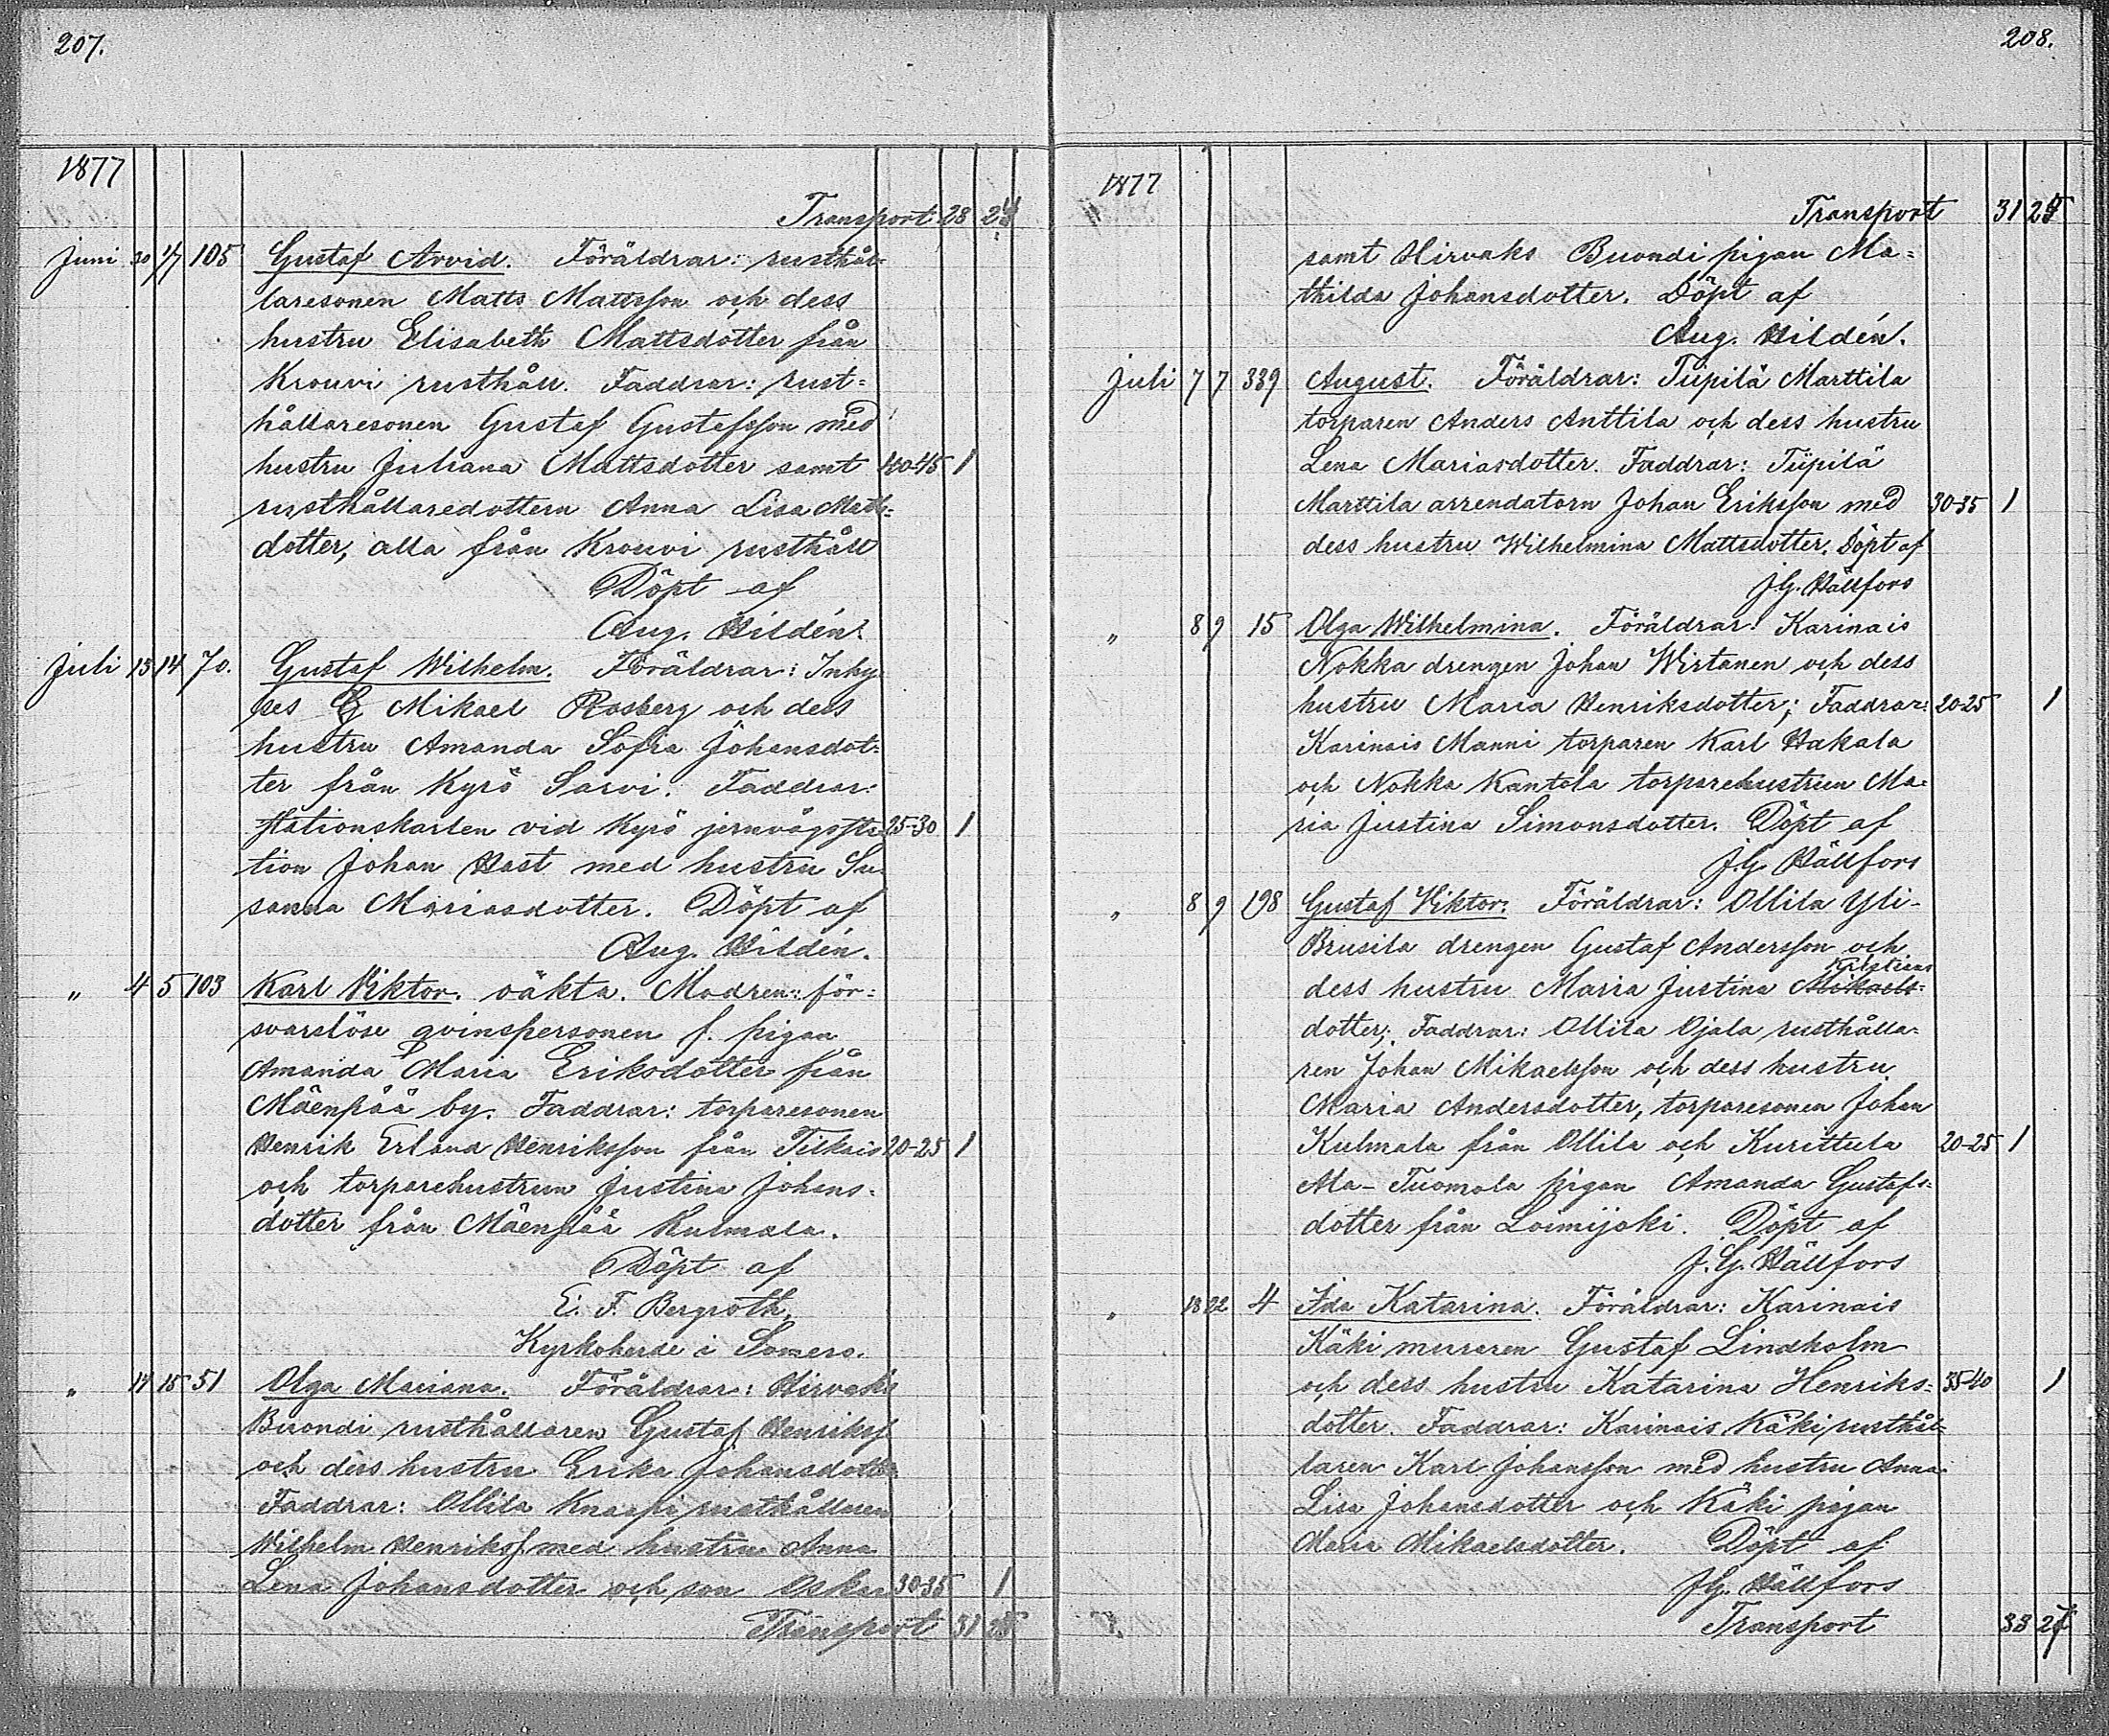 207.
1877
Transport 28 24
Juni 30 1/7 105 Gustaf Arvid. Föräldrar: rusthål-
laresonen Matts Mattsson och dess
hustru Elisabeth Mattsdotter från
Krouvi rusthåll. Faddrar: rust-
hållaresonen Gustaf Gustafsson med
hustru Juliana Mattsdotter samt 40-45 1
rusthållaredottern Anna Lisa Matts-
dotter, alla från Krouvi rusthåll
Döpt af
Aug. Hildén.
Juli 13 14 70. Gustaf Wilhelm. Föräldrar: Inhy-
ses Mikael Rosberg och dess
hustru Amanda Sofia Johansdot-
ter från Kyrö Sarvi. Faddrar:
Stationskarlen vid Kyrö jernvägssta- 25-30 1
tion Johan Hast med hustru Su-
sanna Mariasdotter. Döpt af
Aug. Hildén.
" 4 5 103 Karl Viktor. oäkta. Modren: för-
svarslösa qvinspersonen f. pigan
Amanda Maria Eriksdotter från
Mäenpää by. Faddrar: torparesonen
Henrik Erland Henriksson från Tilkais 20-25 1
och torparehustrun Justina Johans-
dotter från Mäenpää Kulmala.
Döpt af
E. F. Bergroth,
Kyrkoherde i Somero.
" 14 15 51 Olga Mariana. Föräldrar: Hirvaks
Buondi rusthållaren Gustaf Henrikss.
och dess hustru Erika Johansdotter
Faddrar: Ollila Knaapi rusthållaren
Wilhelm Henrikss. med hustru Anna
Lena Johansdotter och son Oskar 30-35 1
Transport 31 25
208.
1877
Transport 31 25
samt Hirvaks Buondi pigan Ma-
thilda Johansdotter. Döpt af
Aug. Hildén.
Juli 7 7 339 August. Föräldrar: Tiipilä Marttila
torparen Anders Anttila och dess hustru
Lena Mariasdotter. Faddrar: Tiipilä
Marttila arrendatorn Johan Eriksson med 30-35 1
dess hustru Wilhelmina Mattsdotter. Döpt af
J.G. Hällfors
" 8 9 15 Olga Wilhelmina. Föräldrar: Karinais
Nokka drengen Johan Wirtanen och dess
hustru Maria Henriksdotter; Faddrar: 20-25 1
Karinais Manni torparen Karl Hakala
och Nokka Kantola torparehustrun Ma-
ria Justina Simonsdotter. Döpt af
J.G. Hällfors
" 8 9 198 Gustaf Viktor. Föräldrar: Ollila Yli-
Brusila drengen Gustaf Andersson och
Kristians
dess hustru Maria Justina Mikaels-
dotter; Faddrar: Ollila Ojala rusthålla-
ren Johan Mikaelsson och dess hustru
Maria Andersdotter, torparesonen Johan
Kulmala från Ollila och Kurittula 20-25 1
Ala-Tuomola pigan Amanda Gustafs-
dotter från Loimijoki. Döpt af
J. G. Hällfors
" 18 22 4 Ida Katarina. Föräldrar: Karinais
Käki muraren Gustaf Lindholm
och dess hustru Katarina Henriks- 35-40 1
dotter. Faddrar: Karinais Käki rusthål-
laren Karl Johansson med hustru Anna
Lisa Johansdotter och Käki pigan
Maria Mikaelsdotter. Döpt af
J.G. Hällfors
Transport 33 27